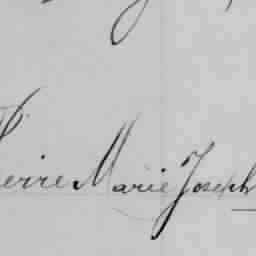 Pierre Marie Joseph